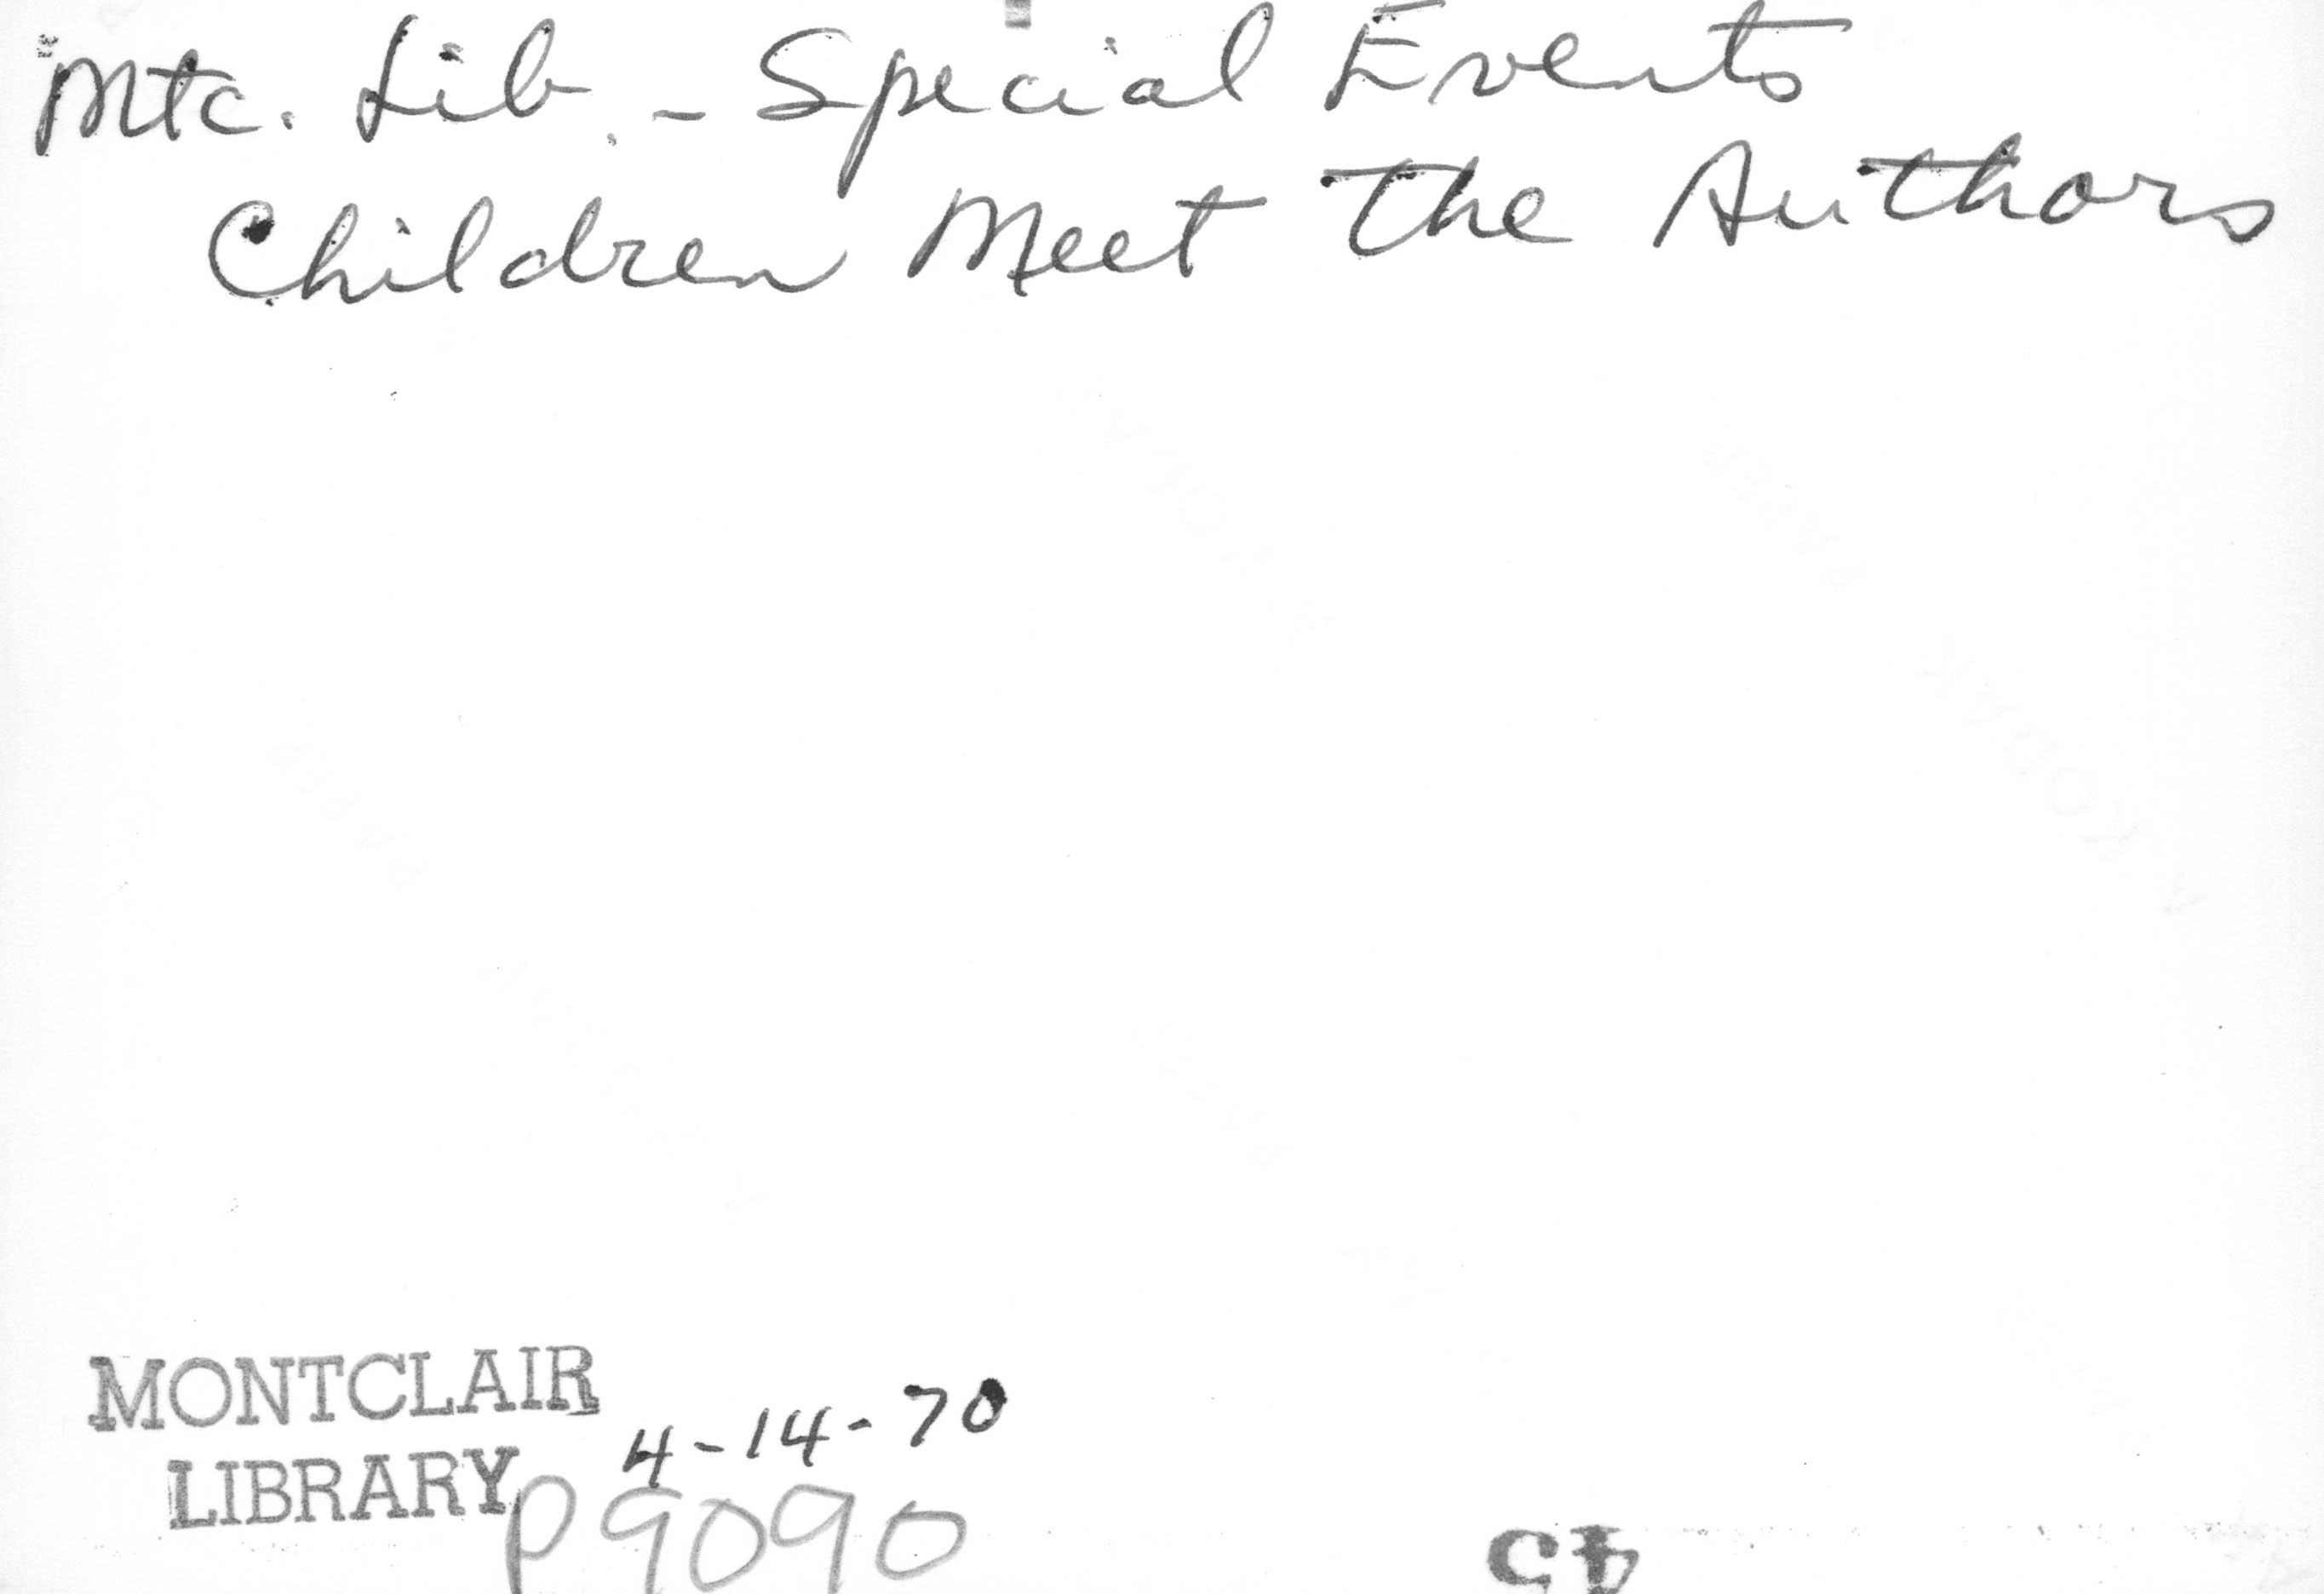 Mtc. Lib. - Special Events
Children Meet The Authors
MONTCLAIR
LIBRARY
4-14-70
P9090